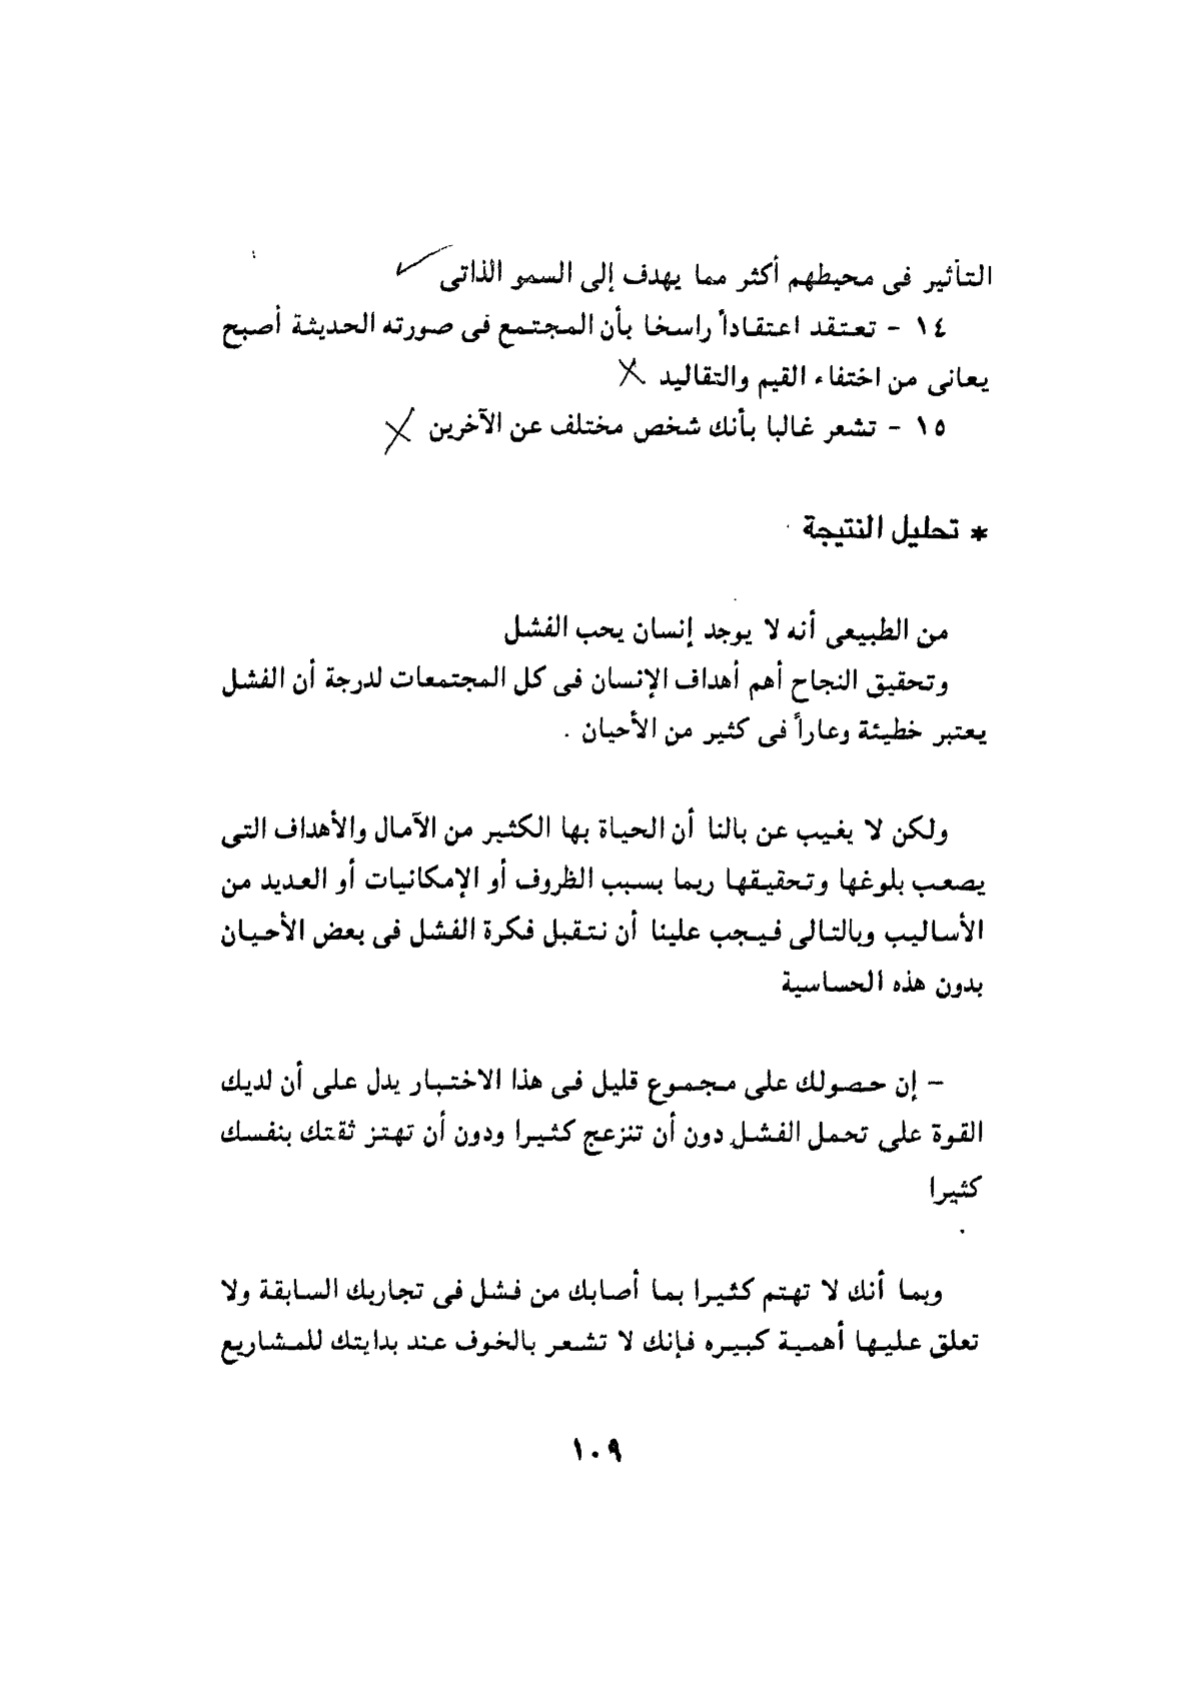 التأثير فى محيطهم أكثر مما يهدف إلى السمو الذاتى ✓
١٤ - تعتقد اعتقاداً راسخا بأن المجتمع فى صورته الحديثة أصبح
يعانى من اختفاء القيم والتقاليد X
١٥ - تشعر غالبا بأنك شخص مختلف عن الآخرين X
* تحليل النتيجة
من الطبيعى أنه لا يوجد إنسان يحب الفشل
وتحقيق النجاح أهم أهداف الإنسان فى كل المجتمعات لدرجة أن الفشل
يعتبر خطيئة وعاراً فى كثير من الأحيان .
ولكن لا يغيب عن بالنا أن الحياة بها الكثير من الآمال والأهداف التى
يصعب بلوغها وتحقيقها ربما بسبب الظروف أو الإمكانيات أو العديد من
الأساليب وبالتالى فيجب علينا أن نتقبل فكرة الفشل فى بعض الأحيان
بدون هذه الحساسية
- إن حصولك على مجموع قليل فى هذا الاختبار يدل على أن لديك
القوة على تحمل الفشل دون أن تنزعج كثيرا ودون أن تهتز ثقتك بنفسك
كثيرا
.
وبما أنك لا تهتم كثيرا بما أصابك من فشل فى تجاربك السابقة ولا
تعلق عليها أهمية كبيره فإنك لا تشعر بالخوف عند بدايتك للمشاريع
١٠٩